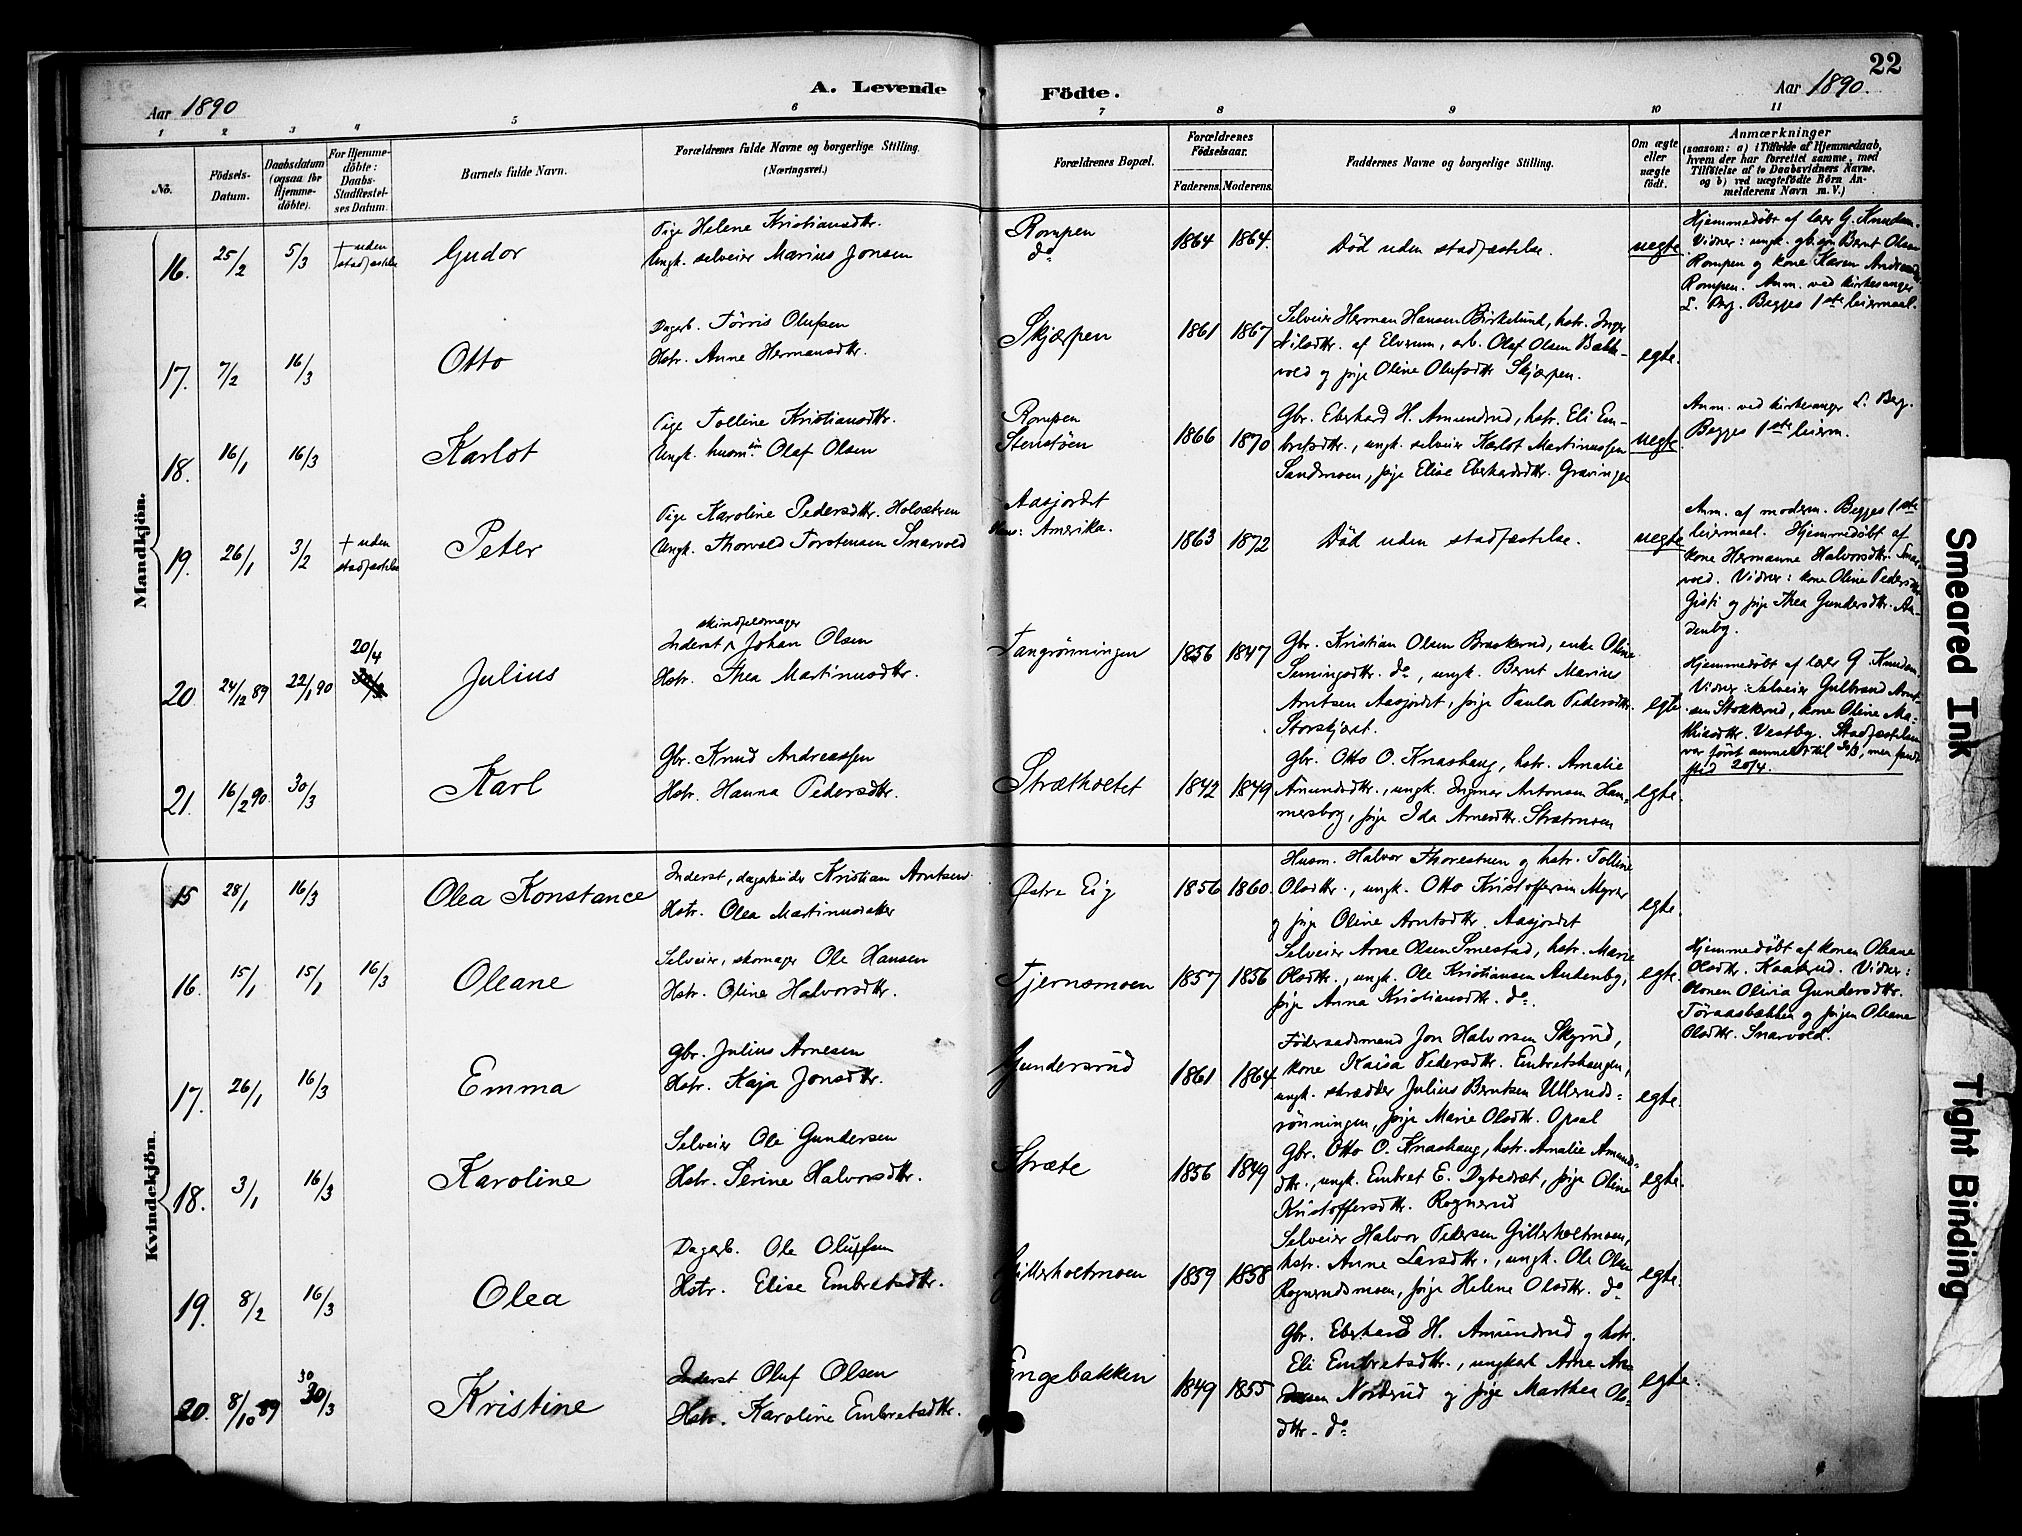 22
Aar 1890
A. Levende
Födte.
Aar 1890.
1 2 3 4 5 6 7 8 9 10 11
No.
Födsels-
Datum.
Daabsdatum
(ogsaa for
Hjemme-
döbte).
For Hjemme-
döbte:
Daabs-
Stadfæstel-
ses Datum.
Barnets fulde Navn.
Forældrenes fulde Navne og borgerlige Stilling.
(Næringsvei.)
Forældrenes Bopæl.
Forældrenes
Födselsaar.
Faderens. Moderens.
Faddernes Navne og borgerlige Stilling.
Om ægte
eller
uægte
født.
Anmærkninger
(saasom: a) i Tilfælde af Hjemmedaab,
hvem der har forrettet samme, med
Tilföielse af to Daabsvidners Navne.
og b) ved uægtefödte Börn An-
melderens Navn m. V.)
Mandkjön.
16. 25/2 5/3 + uden
stadfæstelse
Gudor
Pige Helene Kristiansdtr.
Ungk. selveier Marius Jonsen
Rompen
do
1864 1864.
Död uden stadfæstelse.
uegte
Hjemmedøbt af lærer G. Knudsen.
Vidner: ungk. gb.søn Bernt Olsen
Rompen og kone Karen Andreasd
Rompen. Anm. ved kirkesanger
L. Berg. Begges 1ste leiermaal.
17. 7/2 16/3
Otto
Dagarb. Törris Olufsen
Hstr. Anne Hermansdtr.
Skjærpen
1861 1867
Selveier Herman Hansen Birkelund, hstr. Inger
Nilsdtr. af Elverum, arb. Olaf Olsen Bakke-
vold og pige Oline Olufsdtr Skjærpen.
egte.
18. 16/1 16/3
Karlot
Pige Tolline Kristiansdtr.
Ungk. husm.sön Olaf Olsen
Rompen
Stenstøen
1866 1870
Gbr. Eberhard H. Amundrud, hstr. Eli Em-
bretsdtr., ungk. selveier Karlot Martinussen
Sandmoen, pige Elise Eberhardsdtr. Gravinge
uegte
Anm. ved kirkesanger L. Berg.
Begges 1ste leierm.
19. 26/1 3/2 + uden
stadfæstelse
Peter
Pige Karoline Pedersdtr. Holsætren
Ungk. Thorvald Torstensen Snarvold
Aasjordet
Amerika.
1863 1872
Död uden stadfæstelse.
uegte
Anm. af moderen. Begges 1ste
leiermaal. Hjemmedöbt af
kone Hermanne Halvorsdtr. Snar-
vold. Vidner: kone Oline Pedersdtr
Gisti og pige Thea Gundersdtr. An-
denby.
20. 24/12 89 22/1 90 20/4
Julius
skindfelmager
Inderst Johan Olsen
Hstr. Thea Martinusdtr.
Tangrönningen
1856 1847
Gbr. Kristian Olsen Braskerud, enke Oline
Semingsdtr. do, ungk. Bernt Marius
Arntsen Aasjordet, pige Paula Pedersdtr.
Storskjæret.
egte
Hjemmedöbt af lærer G. Knudsen.
Vidner: Selveier Gulbrand Arnt-
sen Stokkerud, kone Oline Ma-
thisdtr. Vestby. Stadfæstelsen
var först anmeldt til 30/3, men fandt
sted 20/4.
21. 16/2 90. 30/3
Karl
Gbr. Knud Andreassen
Hstr. Hanna Pedersdtr.
Strætkoltet
1842 1849
Gbr. Otto O. Knashaug, hstr. Amalie
Amundsdtr., ungk. Ingmar Antonsen Ham-
mersborg, pige Ida Arnesdtr. Strætmoen
egte.
Kvindekjön.
15 28/1 16/3
Olea Konstance
Inderst, dagarbeider Kristian Arntsen
Hstr. Olea Martinusdatter
Østre Eig
1856 1860.
Husm. Halvor Thorestuen og hstr. Tolline
Olsdtr., ungk. Otto Kristoffersen Myrer
og pige Oline Arntsdtr. Aasjordet
egte.
16. 15/1 15/1 16/3
Oleane
Selveier, skomager Ole Hansen
Hstr. Oline Halvorsdtr.
Tjernsmoen
1857 1856
Selveier Arne Olsen Smestad, hstr. Marie
Olsdtr., ungk. Ole Kristiansen Andenby,
pige Anna Kristiansdtr. do.
egte.
Hjemmedöbt af konen Oleane
Olsdtr. Kaaterud. Vidner:
Konen Olivia Gundersdtr.
Töraasbækken og pigen Oleane
Olsdtr. Snarvold.
17. 26/1 16/3
Emma
Gbr. Julius Arnesen
Hstr. Kaja Jonsdtr.
Gundersrud
1861 1864
Föderaadsmand Jon Halvorsen Skyrud,
kone Kaisa Pedersdtr. Embretshaugen,
ungk. skrædder Julius Berntsen Ullerruds-
rönningen, pige Marie Olsdtr. Opsal
egte.
18. 3/1 16/3
Karoline
Selveier Ole Gundersen
Hstr. Serine Halvorsdtr.
Stræte
1856 1849
Gbr. Otto O. Knashaug, hstr. Amalie Amunds-
dtr., ungk. Embret E. Dybedræt, pige Oline
Kristoffersdtr. Rognerud
egte.
19. 8/2 16/3
Olea
Dagarb. Ole Olufsen
Hstr. Elise Embretsdtr.
Gillerholtmoen
1859 1858
Selveier Halvor Pedersen Gillerholtmoen,
hstr. Anne Larsdtr., ungk. Ole Olsen
Rognerudsmoen, pige Helene Olsdtr. do
egte.
20. 8/10 89 30 30/3
Kristine
Inderst Oluf Olsen
Hstr. Karoline Embretsdtr.
Engebakken
1849 1855
Gbr. Eberhard H. Amundrud og hstr.
Eli Embretsdtr., ungkarl Arne Arn-
Nordsrud og pige Marthea Ols-
dtr. do
egte.
Smeared Ink
Tight Binding